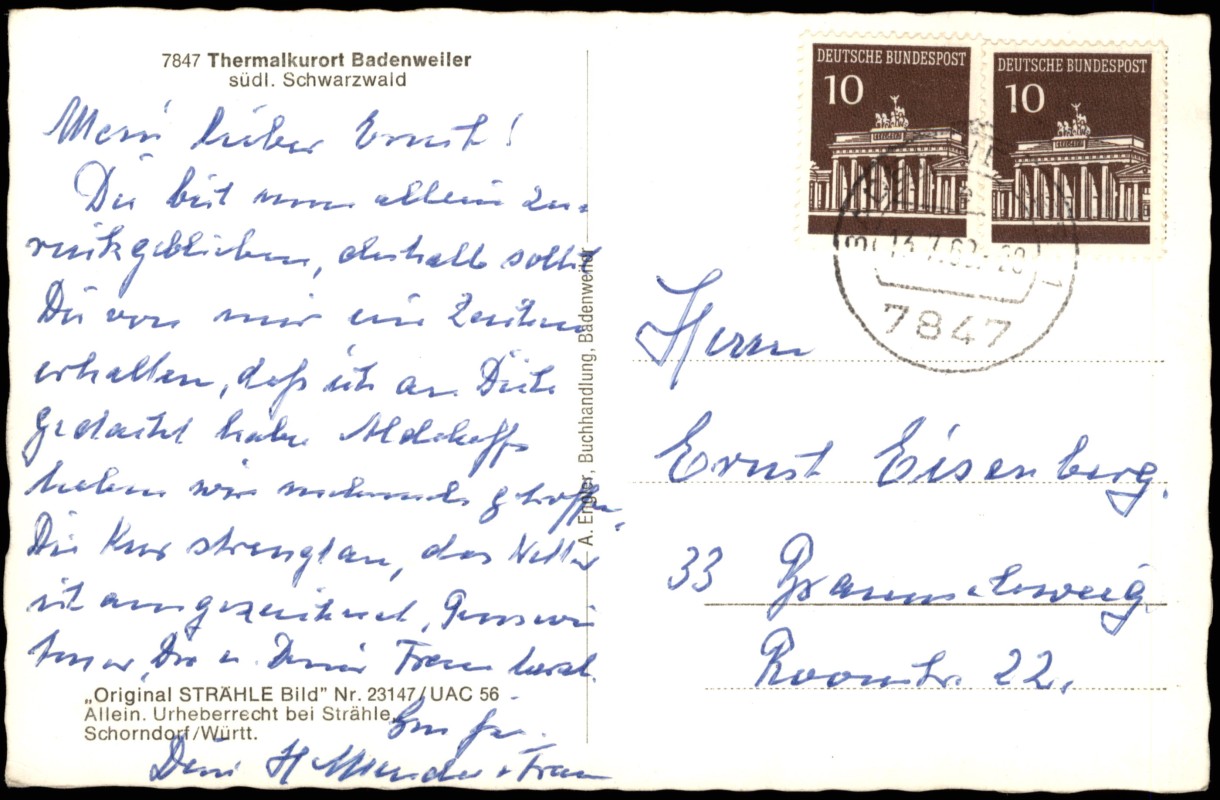 7847 Thermalkurort Badenweiler
südl. Schwarzwald
Mein lieber Ernst!
Du bist nun allein zu-
rückgeblieben, deshalb sollst
Du von mir ein Zeichen
erhalten, daß ich an Dich
gedacht habe
haben wir mehrmals getroffen.
Die Kur strengt an, das Wetter
ist ausgezeichnet,
Dir u. Deiner Frau herzl.
Deine H. u. Frau
„Original STRÄHLE Bild" Nr. 23147/UAC 56
Allein. Urheberrecht bei Strähle,
Schorndorf/Württ.
A. Engler, Buchhandlung, Badenweiler
DEUTSCHE BUNDESPOST
10
DEUTSCHE BUNDESPOST
10
7847
Herrn
Ernst Eisenberg.
33 Braunschweig
Roonstr. 22.